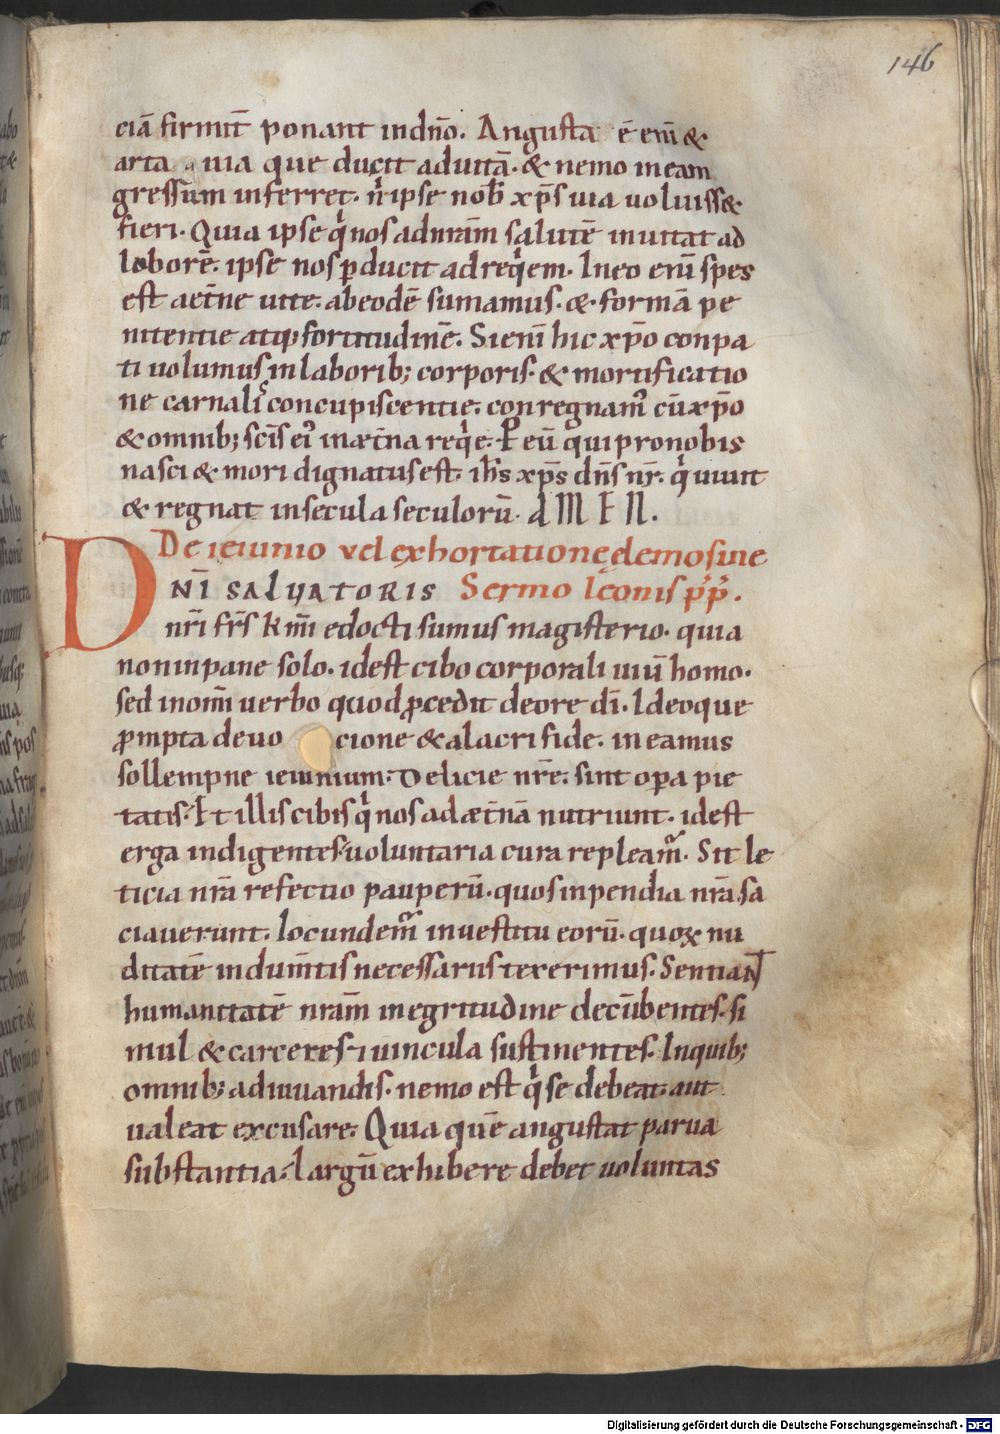 146
ciā firmit̄ ponant indn̄o. Angusta ē enī &
arta uia que ducit aduitā. & nemo ineam
gressum inferret. n̄ ipse nob̄ xp̄s uia uoluiss&
fieri. Quia ipse q̇ nos adnr̄am salutē inuitat ad
laborē. ipse nos ꝑducit adreq̇em. Ineo enī spes
est aet̄ne uite. abeodē sumamus. & formā pe
nitentie atq; fortitudinē. Si enī hic xp̄o conpa
ti uolumus inlaborib; corporis. & mortificatio
ne carnalis concupiscentie. conregnam᷒ cū xp̄o
& omnib; sc̄is ei᷒ inæt̄na req̇e. P eū qui pro nobis
nasci & mori dignatus est. ih̄s xp̄s dn̄s nr̄. q̇ uiuit
& regnat insecula seculorū. AMEN.
De ieiunio vel exhortatione elemosine
DNI SALVATORIS Sermo leonis pp.
nr̄i fr̄s km̄i edocti sumus magisterio. quia
non inpane solo. idest cibo corporali uiu& homo.
sed inomī uerbo quod ꝓcedit deore dī. Ideoque
ꝓmpta deuo cione & alacri fide. ineamus
sollempne ieiunium. Delicie nr̄e. sint oꝑa pie
tatis. Et illis cibis q̇ nos adæt̄nā nutriunt. idest
erga indigentes uoluntaria cura repleam᷒. Sit le
ticia nr̄a refectio pauperū. quos inpendia nr̄a sa
ciauerunt. Iocundem᷒ inuestitu eorū. quoꝝ nu
ditatē indum̄tis necessariis texerimus. Sentiant
humanitatē nr̄am inegritudine decūbentes. si
mul & carceres ⁊ uincula sustinentes. Inquib;
omnib; adiuuandis. nemo est q̇ se debeat. aut
ualeat excusare. Quia quē angustat parua
substantia. largū exhibere debet uoluntas
Digitalisierung gefördert durch die Deutsche Forschungsgemeinschaft - DFG